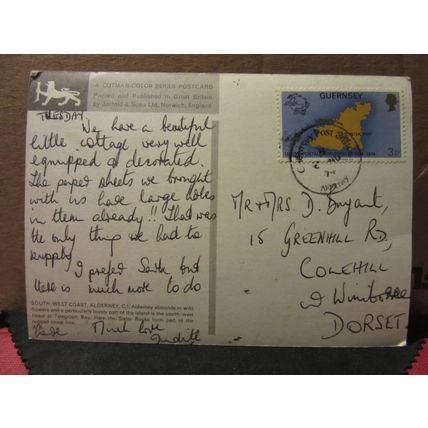 A COTMAN-COLOR SERIES POSTCARD
Printed and Published in Great Britain
by Jarrold & Sons Ltd, Norwich, England
TUESDAY
We have a beautiful
little cottage very well
equipped & decorated.
The paper sheets we brought
with us have large holes
in them already!! That was
the only thing we had to
supply
I prefer Sark but
there is much more to do
SOUTH-WEST COAST, ALDERNEY, C.I. Alderney abounds in wild
flowers and a particularly lovely part of the island is the south-west
coast at Telegraph Bay. Here the Sister Rocks form part of the
rugged coast line.
here Much love
Judith
GUERNSEY
3p
POST
ALDERNEY
Mr & MRS. D. Bryant,
15 GREENHILL RD,
COLEHILL
Wimborne
DORSET.